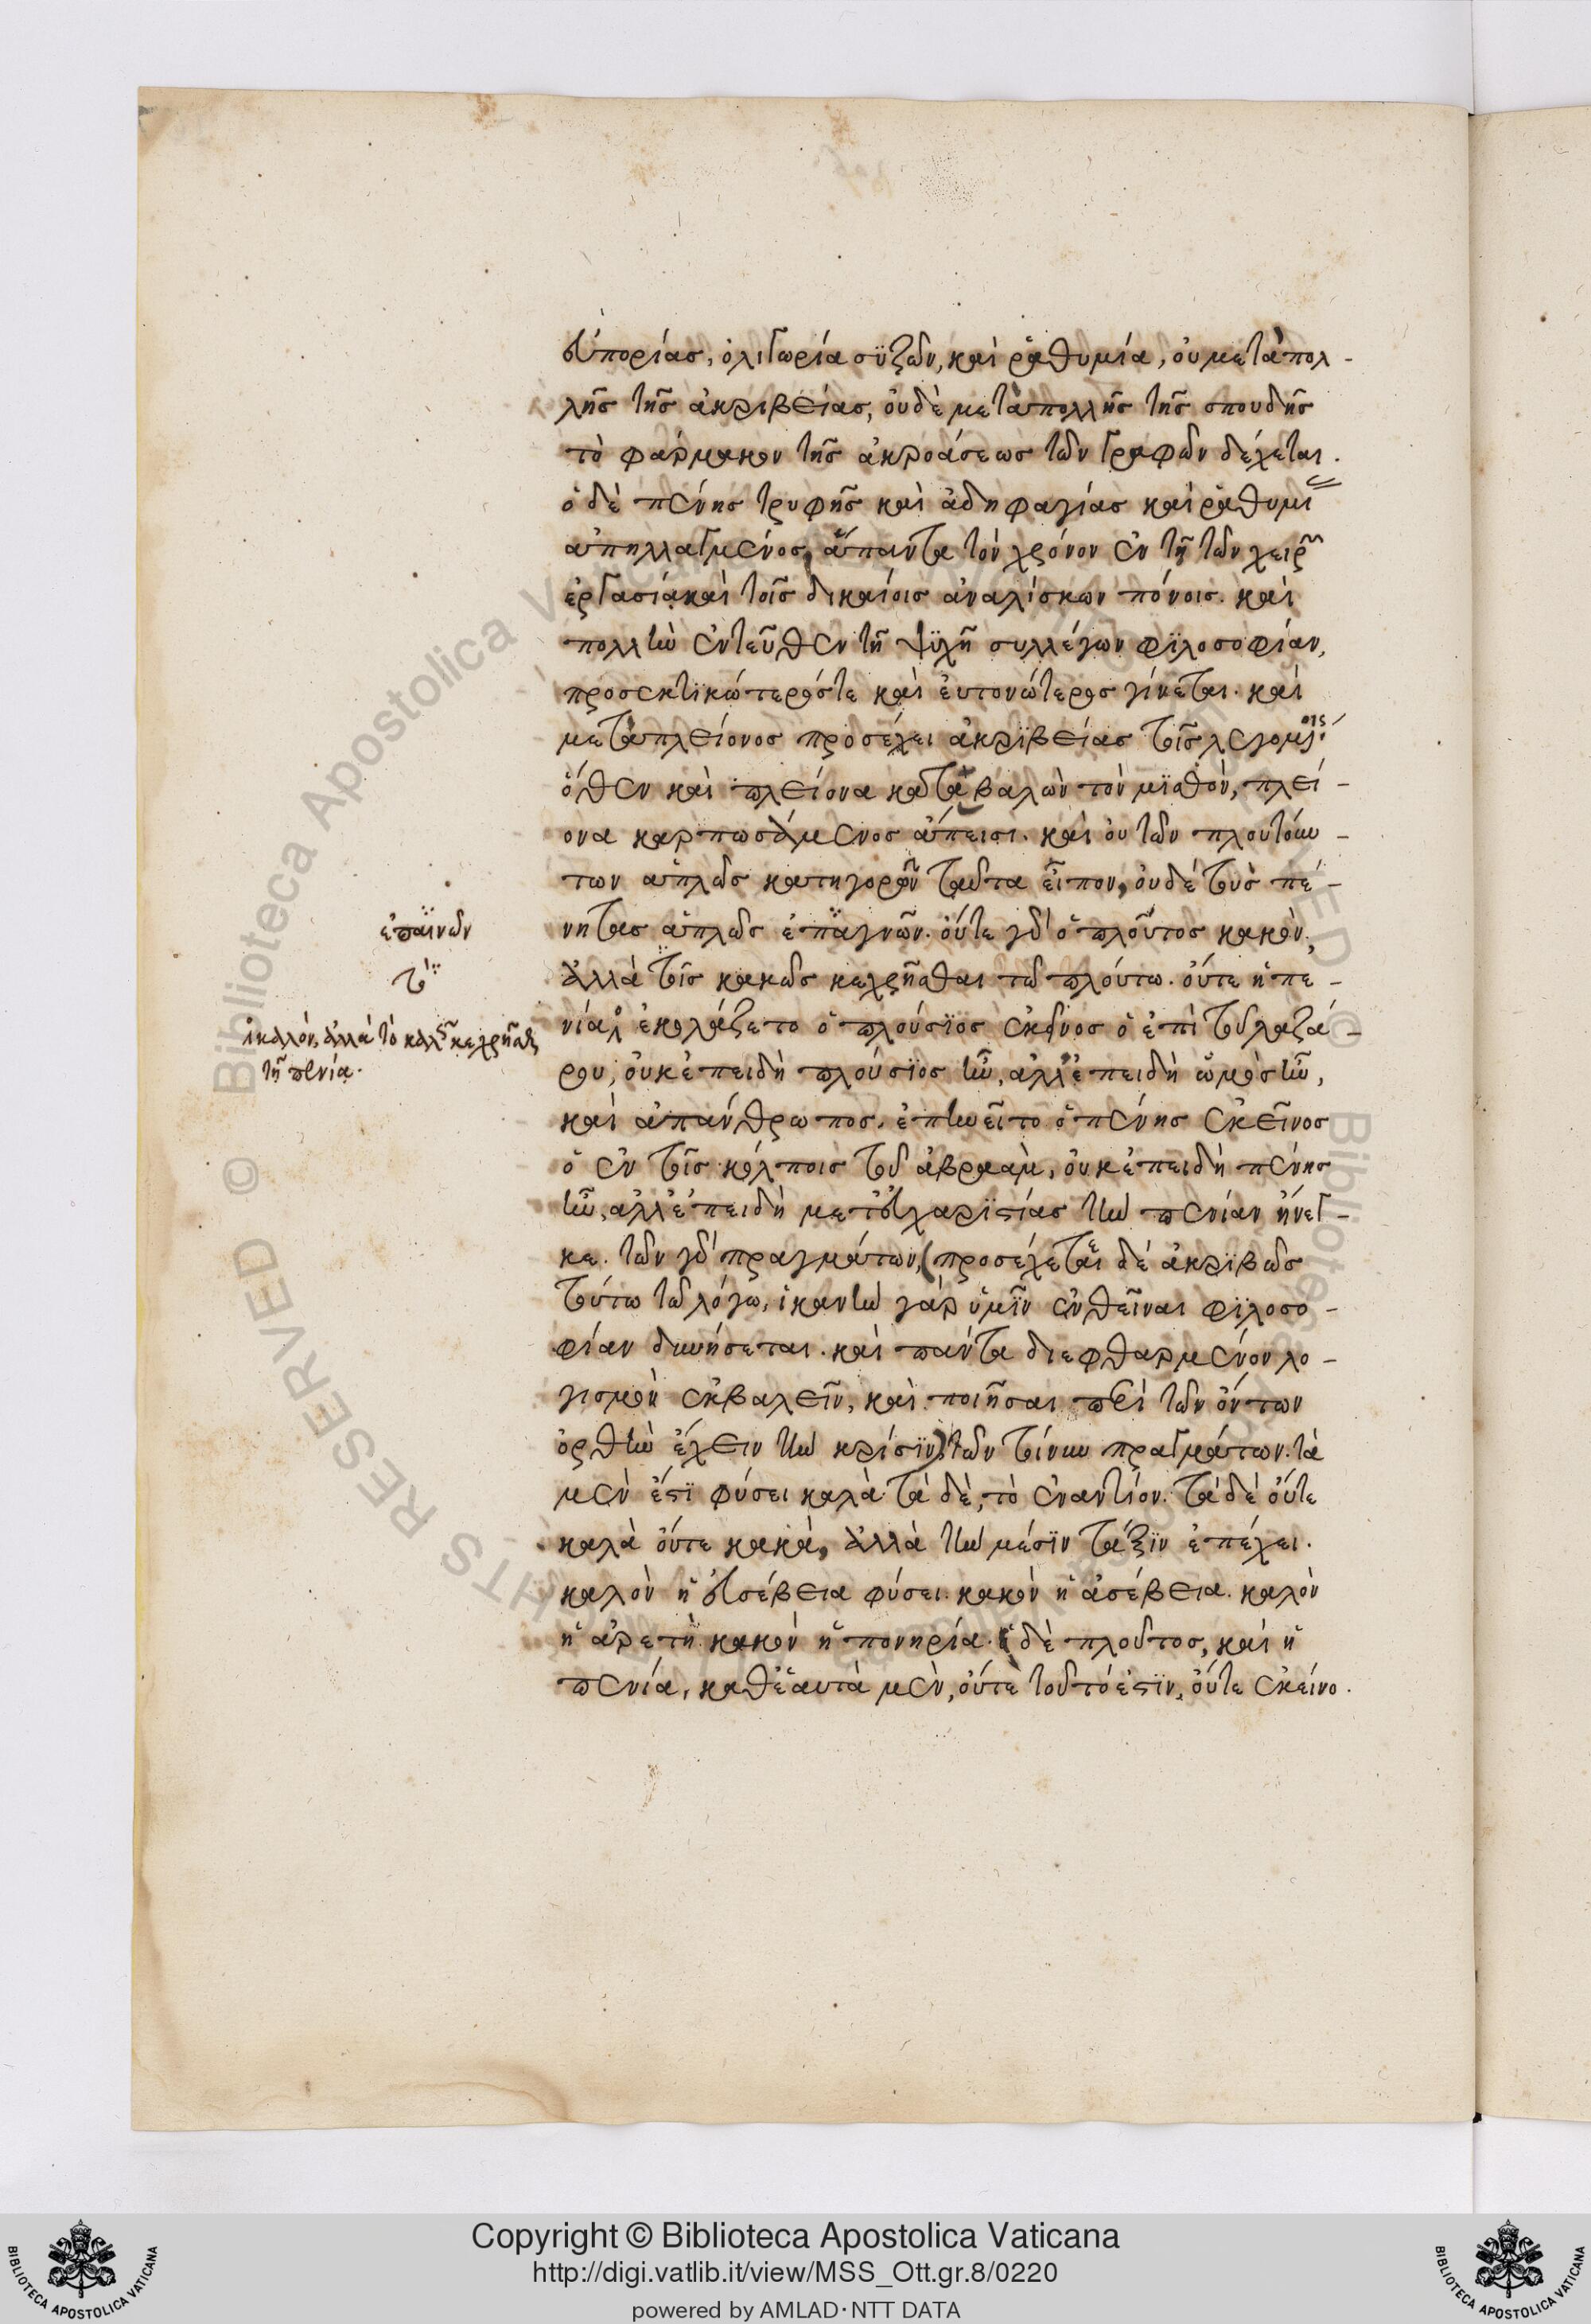 εὐπορίας, ὀλιγωρία συζῶν, καὶ ῥαθυμία, οὐ μετὰ πολ-
λῆς τῆς ἀκριβείας, οὐδὲ μετὰ πολλῆς τῆς σπουδῆς
τὸ φάρμακον τῆς ἀκροάσεως τῶν γραφῶν δέχεται.
ὁ δὲ πένης τρυφῆς καὶ ἀδηφαγίας καὶ ῥαθυμί
ἀπηλλαγμένος, ἅπαντα τὸν χρόνον ἐν τῇ τῶν χειρ
ἐργασία καὶ τοῖς δικαίοις ἀναλίσκων πόνοις. καὶ
πολλὴν ἐντεῦθεν τῆ ψϋχῆ συλλέγων φϊλοσοφίαν,
προσεκτϊκώτερός τε καὶ εὐτονώτερος γίνεται. καὶ
μετὰ πλείονος προσέχει ἀκρϊβείας τοῖς λεγομένοις.
ὅθεν καὶ πλείονα καταβαλὼν τὸν μϊσθὸν, πλεί-
ονα καρπωσάμενος ἄπεισι. καὶ οὐ τῶν πλουτούν-
των ἁπλῶς κατηγορῶν ταῦτα εἶπον, οὐδὲ τοὺς πέ-
νητας ἁπλῶς ἐπαγνῶν. οὔτε γὰρ ὁ πλοῦτος κακὸν,
ἐπαινῶν
ἀλλὰ τοῖς κακῶς κεχρῆσθαι τῶ πλούτω. οὔτε ἡ πε-
τὸ
νία ἐκολάζετο ὁ πλούσϊος ἐκεῖνος ὁ ἐπὶ τοῦ λαζά-
καλόν, ἀλλὰ τὸ καλῶς κεχρῆσθαι
τῆ πενία.
ρου, οὐκ ἐπειδὴ πλούσϊος ἦν, ἀλλ' ἐπειδὴ ὠμὸς ἦν,
καὶ ἀπάνθρωπος. ἐπηνεῖτο ὁ πένης ἐκεῖνος
ὁ ἐν τοῖς κόλποις τοῦ ἀβραὰμ, οὐκ ἐπειδὴ πένης
ἦν, ἀλλ' ἐπειδὴ μετ' εὐχαρϊστίας τὴν πενίαν ἤνεγ-
κε. τῶν γὰρ πραγμάτων, (προσέχετε δὲ ἀκρϊβῶς
τούτω τῶ λόγω, ἱκανὴν γὰρ ὑμῖν ἐνθεῖναι φϊλοσο-
φίαν δυνήσεται. καὶ πάντα διεφθαρμένον λο-
γισμὸν ἐκβαλεῖν, καὶ ποιῆσαι περὶ τῶν ὄντων
ὀρθὴν ἔχειν τὴν κρίσϊν) τῶν τοίνυν πραγμάτων. τὰ
μὲν ἐστϊ φύσει καλὰ τὰ δὲ, τὸ ἐναντίον. τὰ δὲ οὔτε
καλὰ οὔτε κακὰ, ἀλλὰ τὴν μέσϊν τάξϊν ἐπέχει.
καλὸν ἡ εὐσέβεια φύσει. κακὸν ἡ ἀσέβεια. καλὸν
ἡ ἀρετὴ κακὸν ἡ πονηρία. ὁ δὲ πλοῦτος, καὶ ἡ
πενία, καθ' ἑαυτὰ μὲν, οὔτε τοῦτό ἐστϊν, οὔτε ἐκείνο.
Copyright © Biblioteca Apostolica Vaticana
http://digi.vatlib.it/view/MSS_Ott.gr.8/0220
powered by AMLAD·NTT DATA